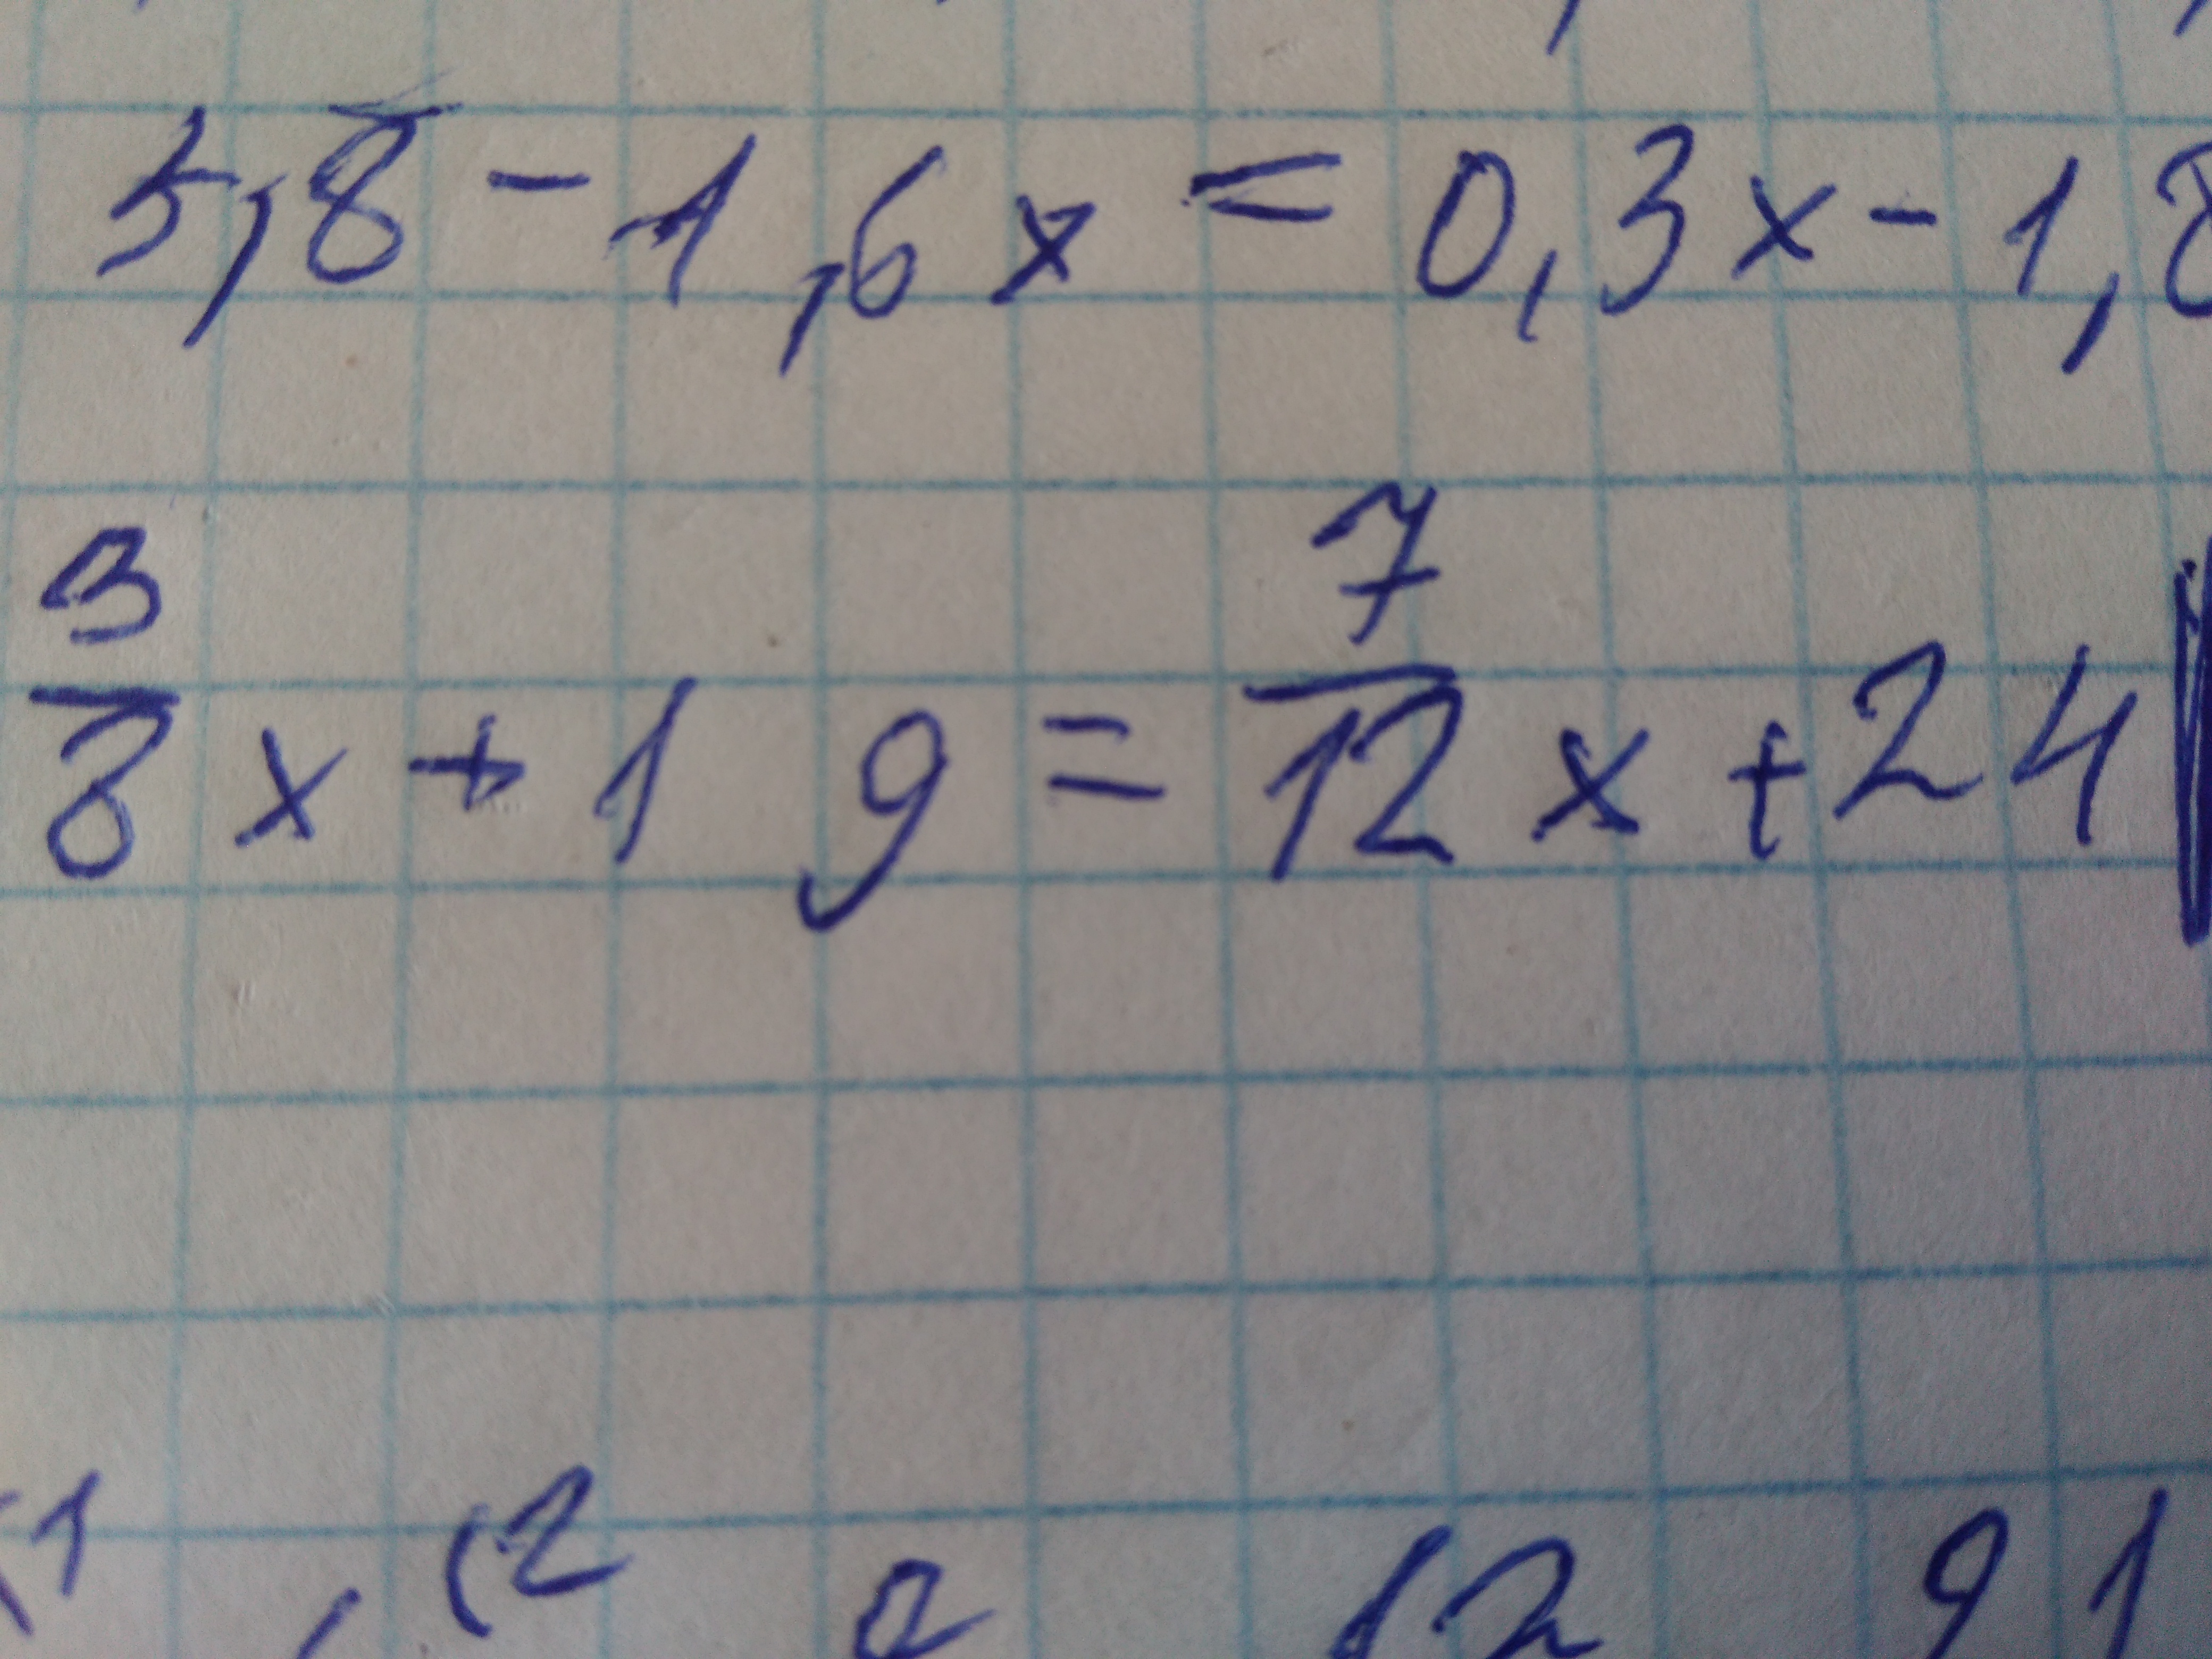 5,8 - 1,6x = 0,3x - 1,8
3/8 x + 19 = 7/12 x + 24